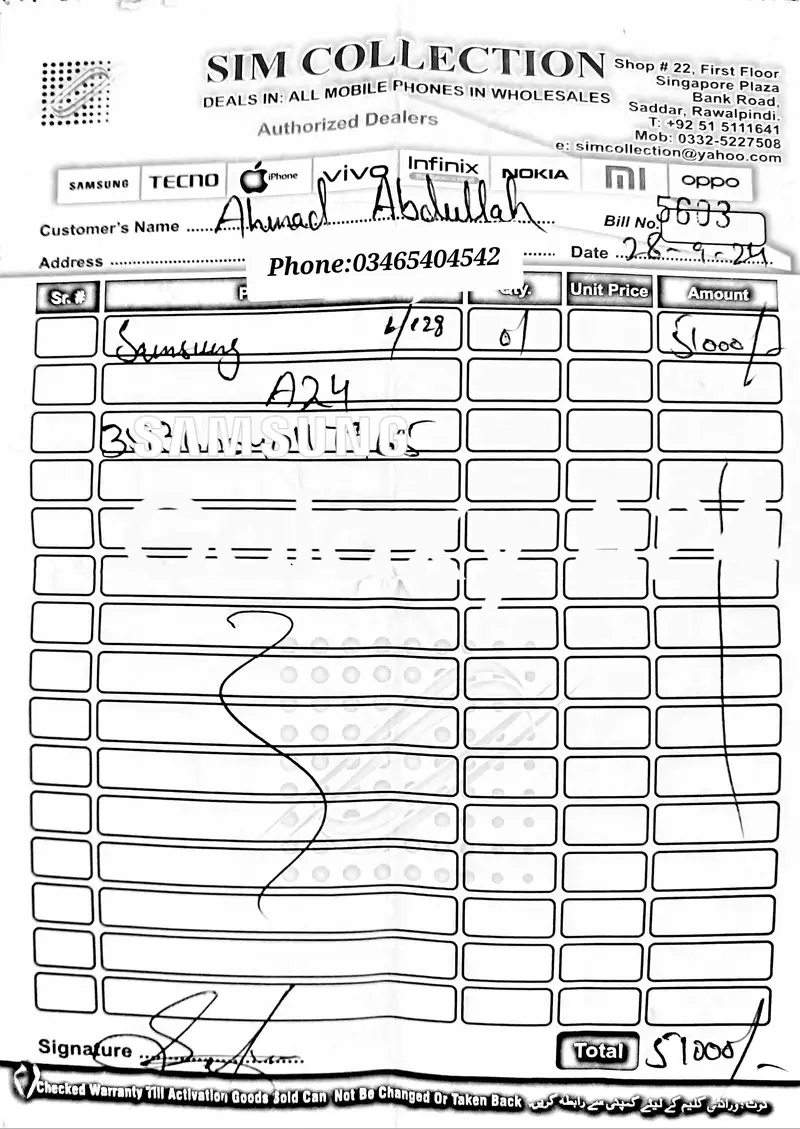 SIM COLLECTION
DEALS IN: ALL MOBILE PHONES IN WHOLESALES
Authorized Dealers
Shop # 22, First Floor
Singapore Plaza
Bank Road,
Saddar, Rawalpindi.
T: +92 51 5111641
Mob: 0332-5227508
e: simcollection@yahoo.com
SAMSUNG TECNO iPhone vivo Infinix NOKIA MI oppo
Customer's Name Ahmad Abdullah Bill No. 5603
Address Phone:03465404542 Date 28-9-24
Sr.# Qty. Unit Price Amount
Samsung 6/128 01 51000/-
A24
SAMSUNG
Signature Total 51000/-
Checked Warranty Till Activation Goods Sold Can Not Be Changed Or Taken Back نوٹ: وارنٹی کلیم کے لیئے کمپنی سے رابطہ کریں۔